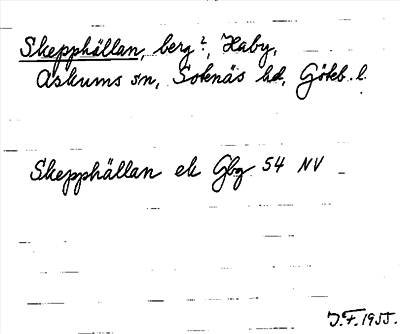 Skepphällan, berg?, Haby,
Askums sn, Sotenäs hd, Göteb. l.
Skepphällan ek Gbg 54 NV
J.F. 1955.